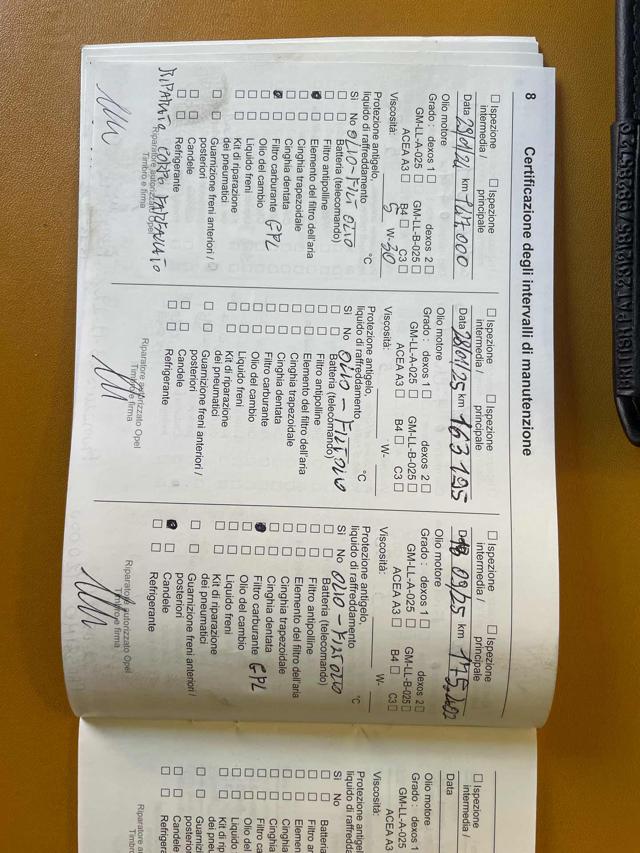 8
Certificazione degli intervalli di manutenzione
☐ Ispezione intermedia / ☐ Ispezione principale
Data 29/01/24 km 147.000
Olio motore
Grado : dexos 1 ☐ dexos 2 ☐
GM-LL-A-025 ☐ GM-LL-B-025 ☐
ACEA A3 ☐ B4 ☐ C3 ☐
Viscosità: 5 W- 30
Protezione antigelo,
liquido di raffreddamento °C
Sì No OLIO - FILT OLIO
☐ ☐ Batteria (telecomando)
☐ ☐ Filtro antipolline
☐ Elemento del filtro dell'aria
☐ ☐ Cinghia trapezoidale
☐ ☐ Cinghia dentata
☐ Filtro carburante GPL
☐ ☐ Olio del cambio
☐ ☐ Liquido freni
☐ ☐ Kit di riparazione
dei pneumatici
☐ ☐ Guarnizione freni anteriori /
posteriori
☐ ☐ Candele
☐ ☐ Refrigerante
Riparatore autorizzato Opel
Timbro e firma
CORPO FARFALLATO
☐ Ispezione intermedia / ☐ Ispezione principale
Data 28/01/25 km 163195
Olio motore
Grado : dexos 1 ☐ dexos 2 ☐
GM-LL-A-025 ☐ GM-LL-B-025 ☐
ACEA A3 ☐ B4 ☐ C3 ☐
Viscosità: W-
Protezione antigelo,
liquido di raffreddamento °C
Sì No OLIO - FILT OLIO
☐ ☐ Batteria (telecomando)
☐ ☐ Filtro antipolline
☐ ☐ Elemento del filtro dell'aria
☐ ☐ Cinghia trapezoidale
☐ ☐ Cinghia dentata
☐ ☐ Filtro carburante
☐ ☐ Olio del cambio
☐ ☐ Liquido freni
☐ ☐ Kit di riparazione
dei pneumatici
☐ ☐ Guarnizione freni anteriori /
posteriori
☐ ☐ Candele
☐ ☐ Refrigerante
Riparatore autorizzato Opel
Timbro e firma
☐ Ispezione intermedia / ☐ Ispezione principale
18 09/25 km
Olio motore
Grado : dexos 1 ☐ dexos 2 ☐
GM-LL-A-025 ☐ GM-LL-B-025 ☐
ACEA A3 ☐ B4 ☐ C3 ☐
Viscosità: W-
Protezione antigelo,
liquido di raffreddamento °C
Sì No OLIO - FILT OLIO
☐ ☐ Batteria (telecomando)
☐ ☐ Filtro antipolline
☐ ☐ Elemento del filtro dell'aria
☐ ☐ Cinghia trapezoidale
☐ ☐ Cinghia dentata
☐ Filtro carburante GPL
☐ ☐ Olio del cambio
☐ ☐ Liquido freni
☐ ☐ Kit di riparazione
dei pneumatici
☐ ☐ Guarnizione freni anteriori /
posteriori
☐ Candele
☐ ☐ Refrigerante
Riparatore autorizzato Opel
Timbro e firma
☐ Ispezione
intermedia /
Data
Olio motore
Grado : dexos 1
GM-LL-A-025
ACEA A3
Viscosità:
Protezione antigelo,
liquido di raffredda
Sì No
☐ ☐ Batteria
☐ ☐ Filtro an
☐ ☐ Elemen
☐ ☐ Cinghia
☐ ☐ Cinghia
☐ ☐ Filtro ca
☐ ☐ Olio del
☐ ☐ Liquido
☐ ☐ Kit di rip
dei pne
☐ ☐ Guarniz
posterio
☐ ☐ Candele
☐ ☐ Refrige
Riparatore a
Timbro